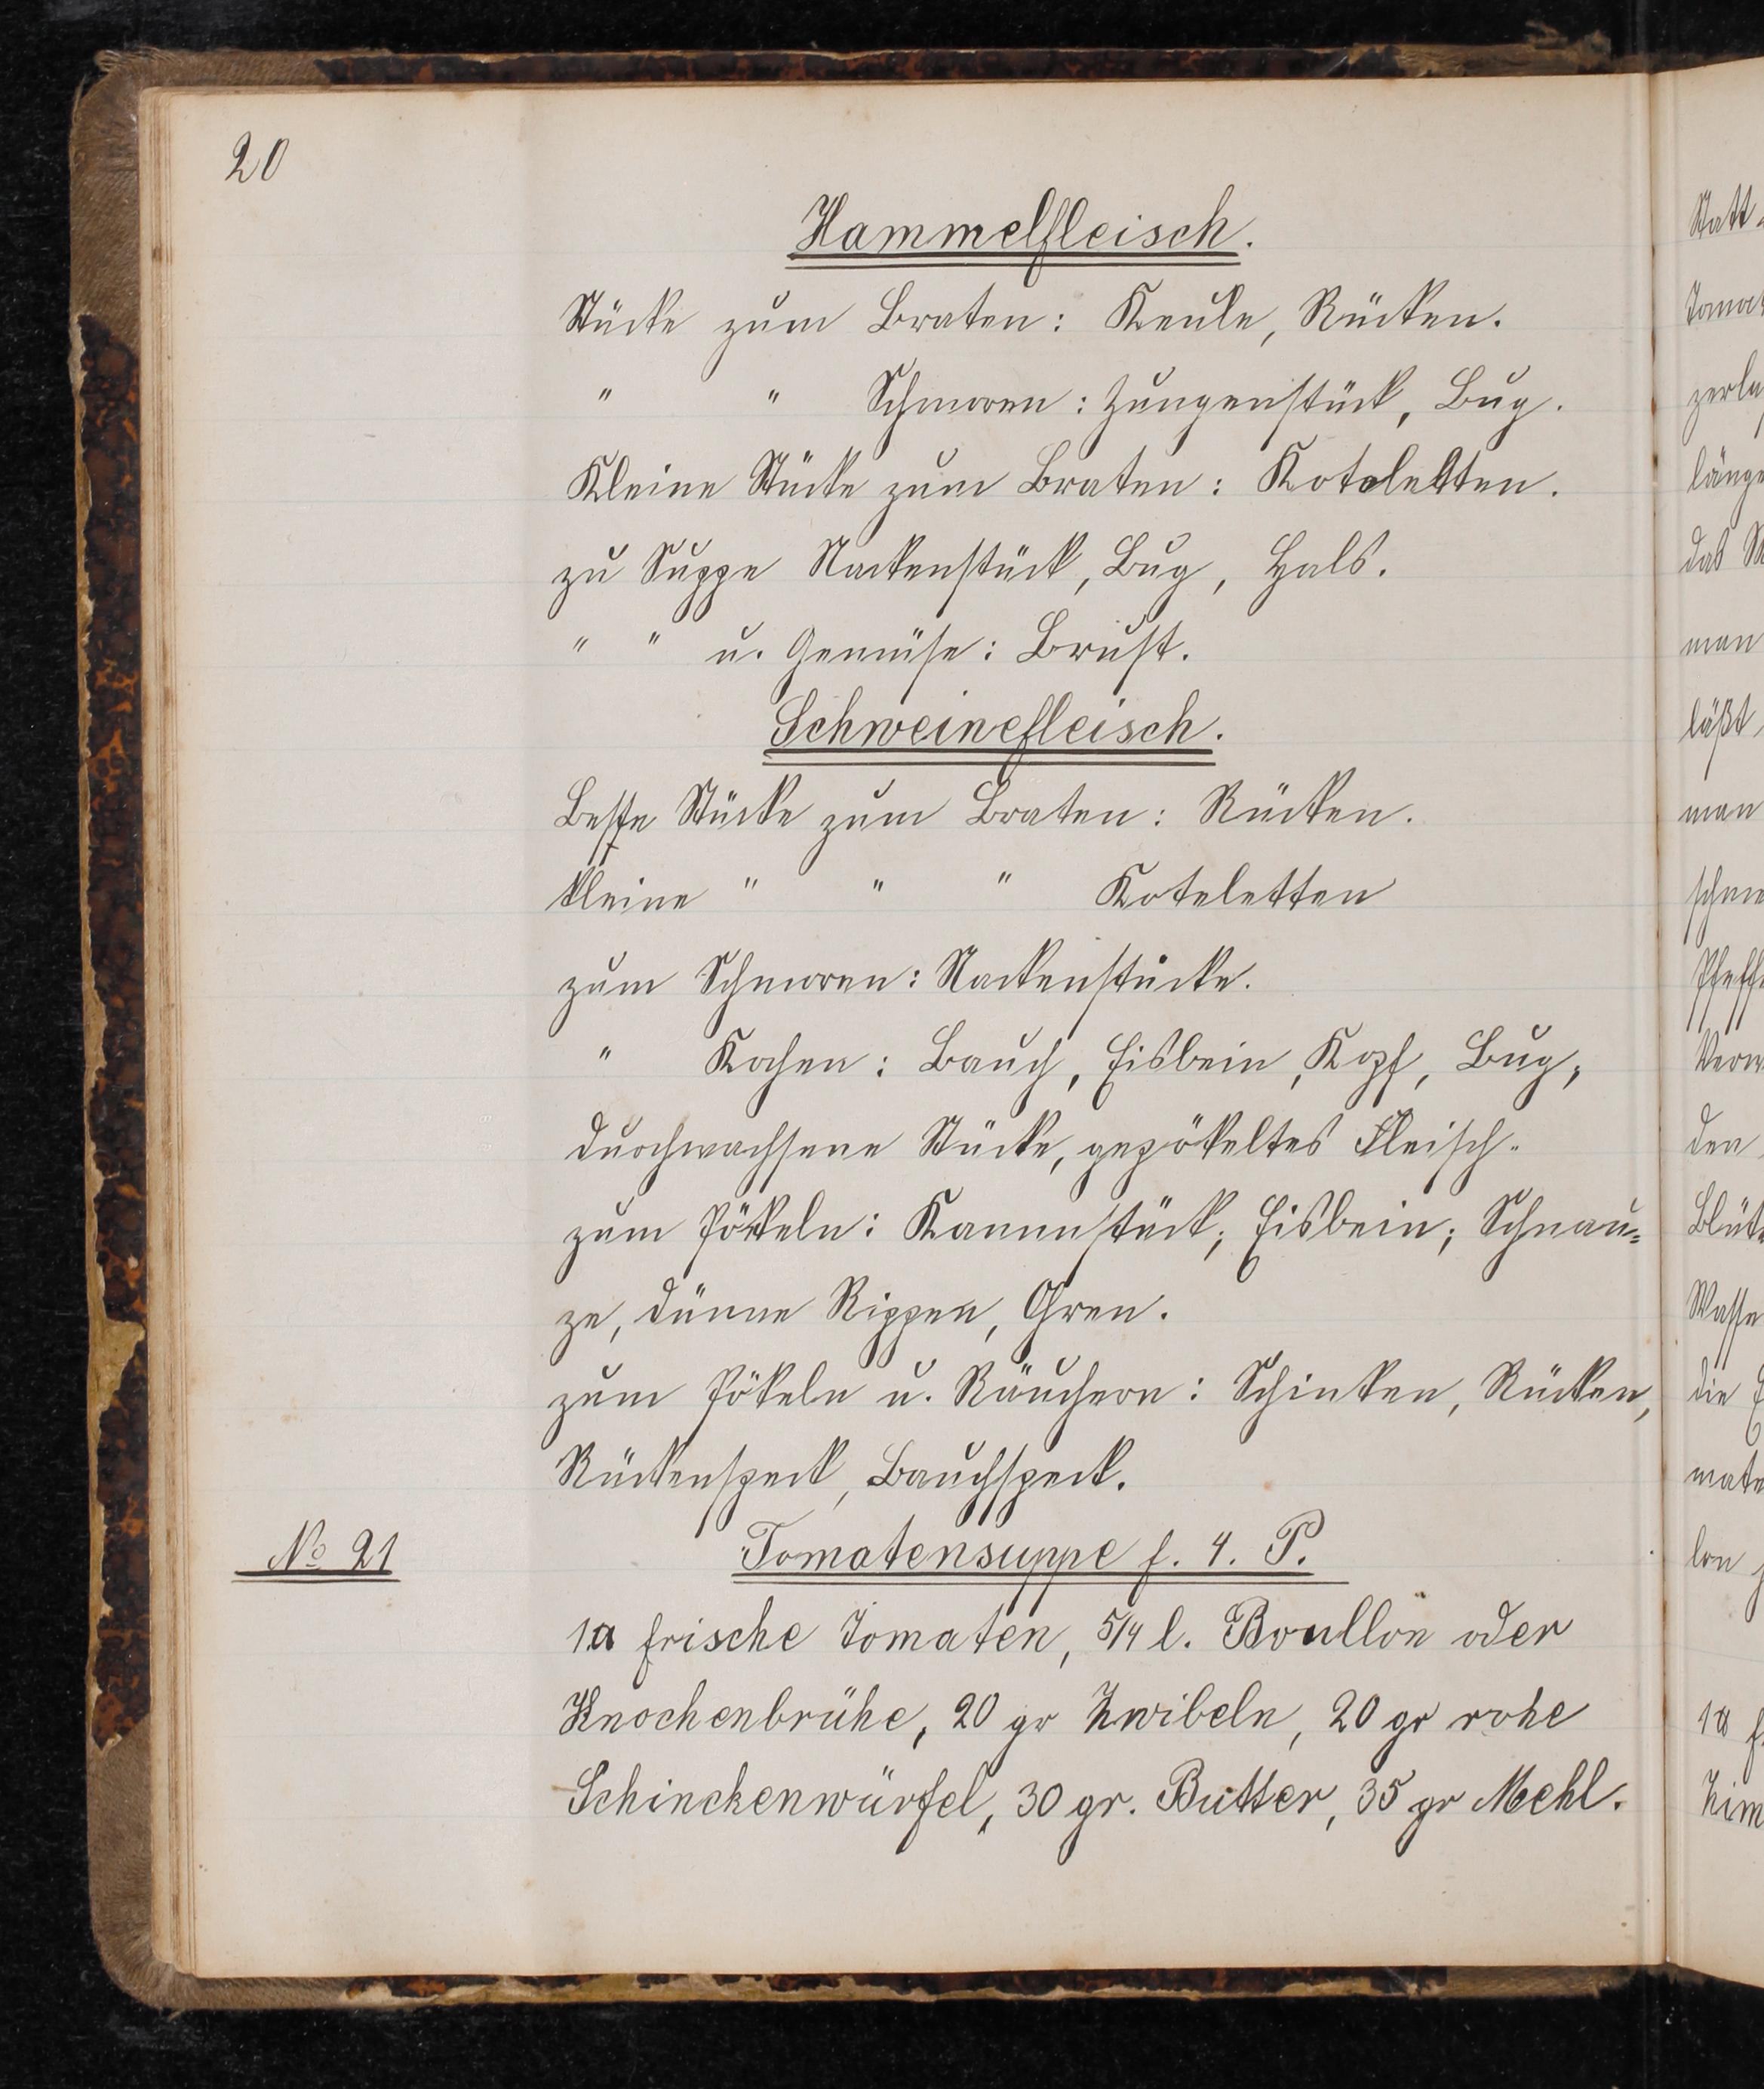 20
Hammelfleisch.
Stücke zum Braten: Keule, Rücken.
" " Schmoren: Zungenstück, Bug.
Kleine Stücke zum Braten: Koteletten.
zu Suppe Nackenstück, Bug, Hals.
" " u. Gemüse: Brust.
Schweinefleisch.
Beste Stücke zum Braten: Rücken.
kleine " " " Koteletten
zum Schmoren: Nackenstücke.
" Kochen: Bauch, Eisbein, Kopf, Bug,
durchwachsene Stücke, gepökeltes Fleisch.
zum Pökeln: Kammstück; Eisbein; Schnau=
ze, dünne Rippen, Ohren.
zum Pökeln u. Räuchern: Schinken, Rücken,
Rückenspeck, Bauchspeck.
No 21 Tomatensuppe f. 4. P.
1 ℔ frische Tomaten, 5/4 l. Boullon oder
Knochenbrühe, 20 gr Zwibeln, 20 gr rohe
Schinckenwürfel, 30 gr. Butter, 35 gr Mehl.
Statt
Tomat
zerla
länge
das
man
läßt,
man
Pfeff
den
Blüt
Wasse
die
mate
lon
1 ℔ f